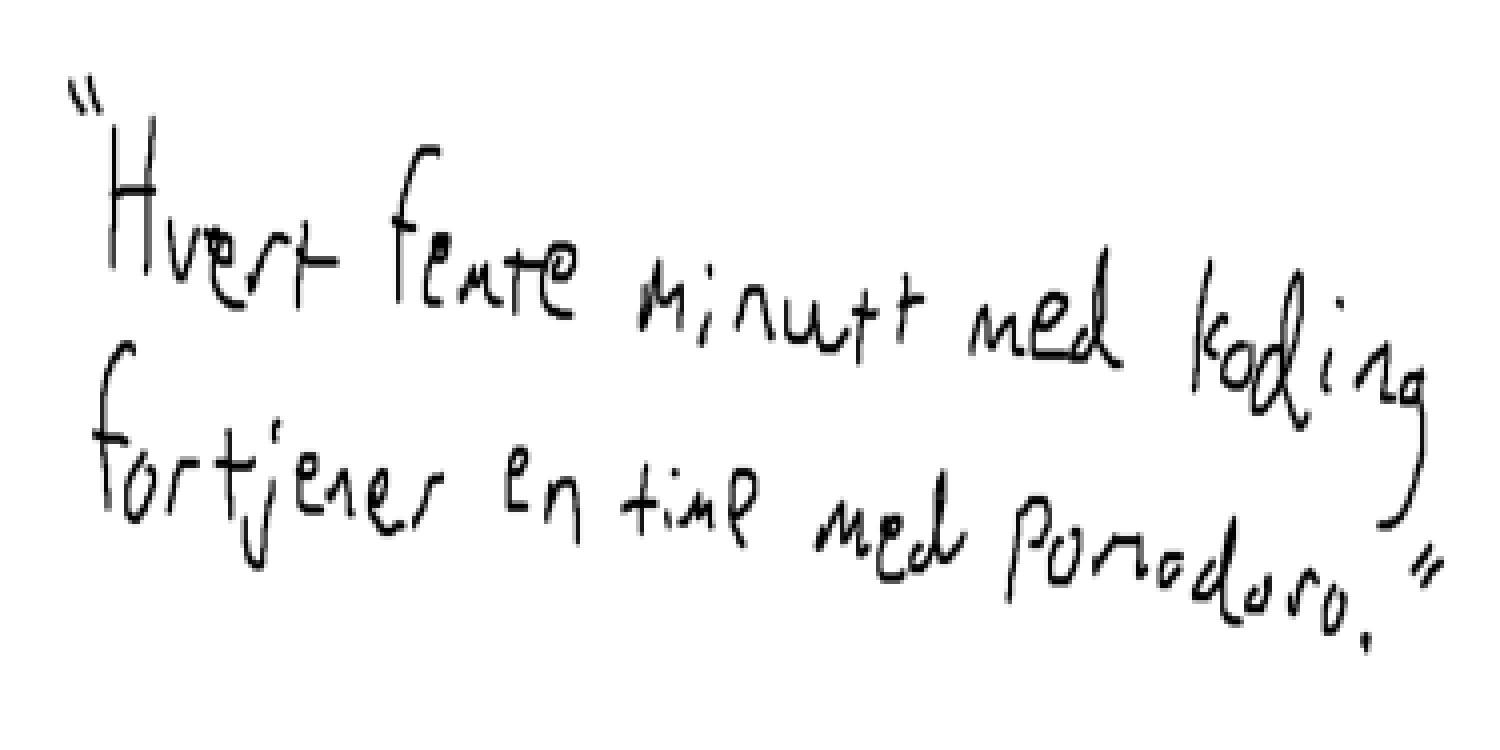 "Hvert femte minutt med koding
fortjener en time med pomodoro."